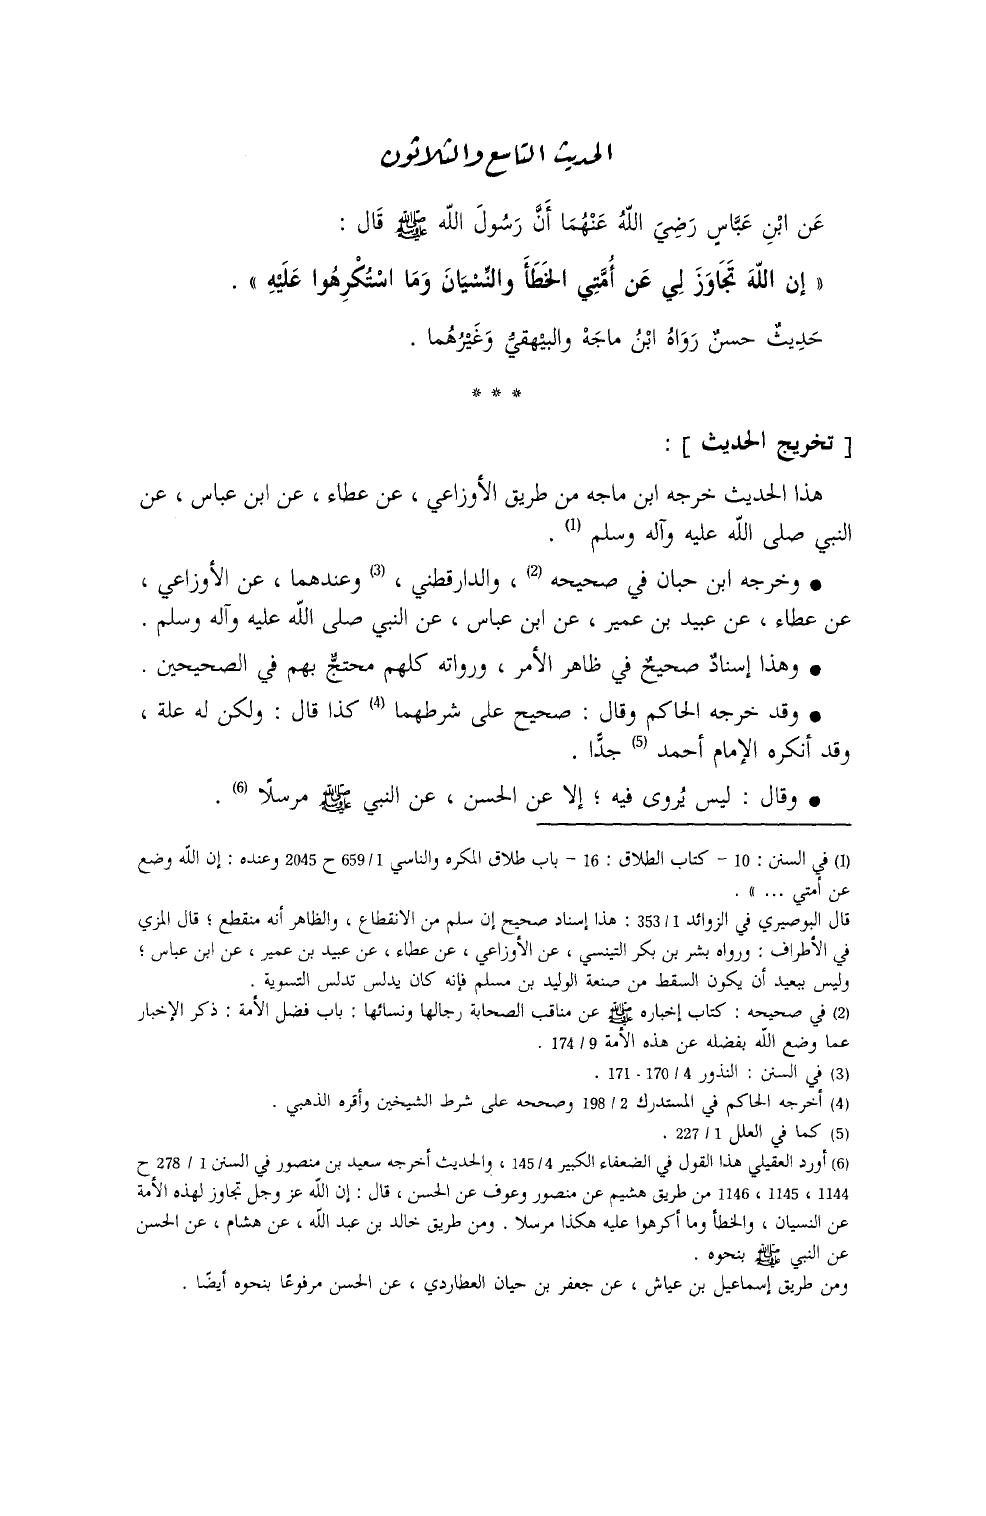 الحديث التاسع والثلاثون
عَن ابْنِ عَبَّاسٍ رَضِيَ اللّهُ عَنْهُمَا أَنَّ رَسُولَ اللّه ﷺ قَال :
« إن اللّهَ تَجَاوَزَ لِي عَن أُمَّتِي الخَطَأَ والنِّسْيَانَ وَمَا اسْتُكْرِهُوا عَلَيْهِ » .
حَدِيثٌ حسنٌ رَوَاهُ ابْنُ ماجَهْ والبيْهقيُّ وَغَيْرُهُما .
* * *
[ تخريج الحديث ] :
هذا الحديث خرجه ابن ماجه من طريق الأوزاعي ، عن عطاء ، عن ابن عباس ، عن
النبي صلى اللّه عليه وآله وسلم (1) .
● وخرجه ابن حبان في صحيحه (2) ، والدارقطني ، (3) وعندهما ، عن الأوزاعي ،
عن عطاء ، عن عبيد بن عمير ، عن ابن عباس ، عن النبي صلى اللّه عليه وآله وسلم .
● وهذا إسنادٌ صحيحٌ في ظاهر الأمر ، ورواته كلهم محتجٌّ بهم في الصحيحين .
● وقد خرجه الحاكم وقال : صحيح على شرطهما (4) كذا قال : ولكن له علة ،
وقد أنكره الإمام أحمد (5) جدًّا .
● وقال : ليس يُروى فيه ؛ إلا عن الحسن ، عن النبي ﷺ مرسلًا (6) .
(1) في السنن : 10 - كتاب الطلاق : 16 - باب طلاق المكره والناسي 1/ 659 ح 2045 وعنده : إن اللّه وضع
عن أمتي ... » .
قال البوصيري في الزوائد 1/ 353 : هذا إسناد صحيح إن سلم من الانقطاع ، والظاهر أنه منقطع ؛ قال المزي
في الأطراف : ورواه بشر بن بكر التينسي ، عن الأوزاعي ، عن عطاء ، عن عبيد بن عمير ، عن ابن عباس ؛
وليس ببعيد أن يكون السقط من صنعة الوليد بن مسلم فإنه كان يدلس تدلس التسوية .
(2) في صحيحه : كتاب إخباره ﷺ عن مناقب الصحابة رجالها ونسائها : باب فضل الأمة : ذكر الإخبار
عما وضع اللّه بفضله عن هذه الأمة 9 / 174 .
(3) في السنن : النذور 4 / 170 - 171 .
(4) أخرجه الحاكم في المستدرك 2 / 198 وصححه على شرط الشيخين وأقره الذهبي .
(5) كما في العلل 1 / 227 .
(6) أورد العقيلي هذا القول في الضعفاء الكبير 4/ 145 ، والحديث أخرجه سعيد بن منصور في السنن 1 / 278 ح
1144 ، 1145 ، 1146 من طريق هشيم عن منصور وعوف عن الحسن ، قال : إن اللّه عز وجل تجاوز لهذه الأمة
عن النسيان ، والخطأ وما أكرهوا عليه هكذا مرسلا . ومن طريق خالد بن عبد اللّه ، عن هشام ، عن الحسن
عن النبي ﷺ بنحوه .
ومن طريق إسماعيل بن عياش ، عن جعفر بن حيان العطاردي ، عن الحسن مرفوعًا بنحوه أيضًا .